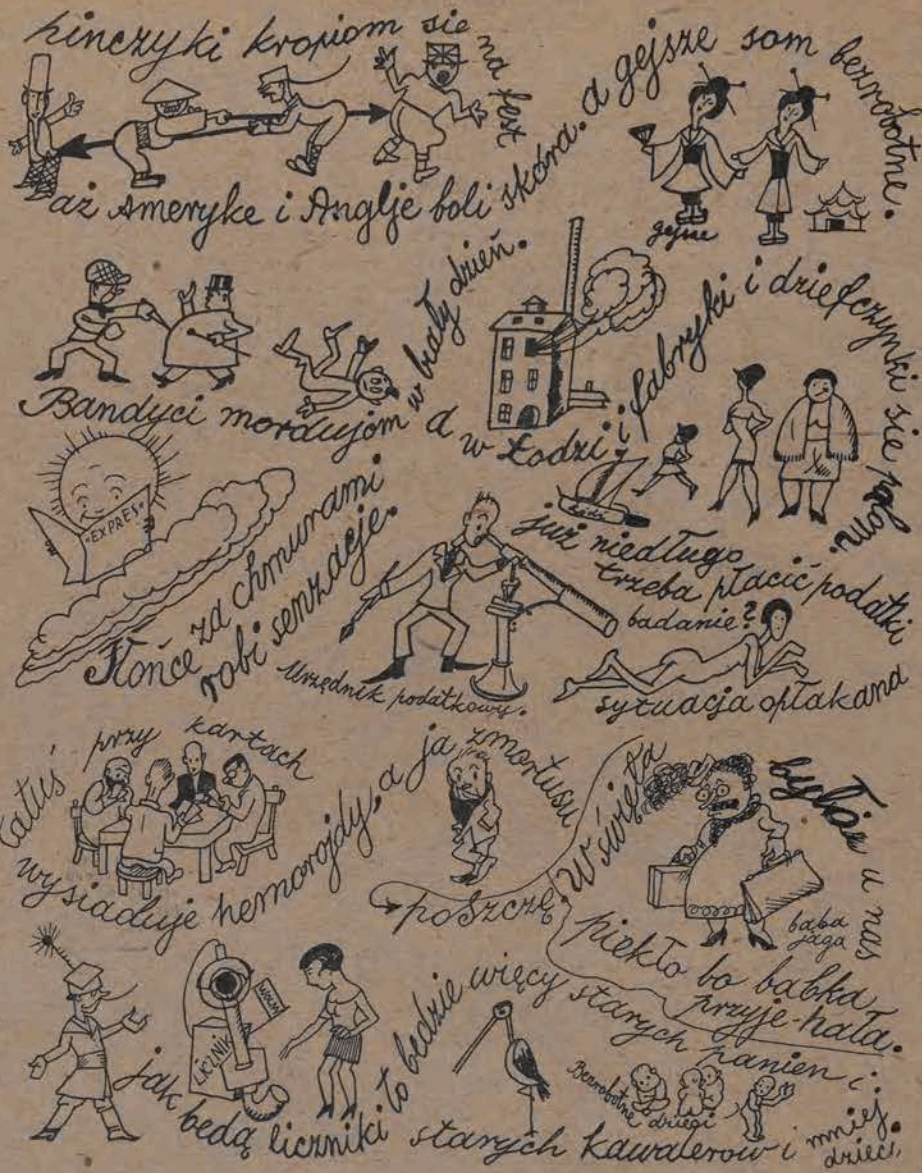 hinczyki kropiom sie na fest
aż Ameryke i Anglje boli skóra. a gejsze som bezrobotne.
gejsze
Bandyci mordujom w biały dzień.
a w Łodzi i fabryki i dziefczynki sie palom.
Łódź
"EXPRES"
Słońce za chmurami
robi senzacje.
już niedługo
trzeba płacić podatki
badanie?
Urzędnik podatkowy.
sytuacja opłakana
tatuś przy kartach
wysiaduje hemorojdy, a ja zmortusu
poszczę.
W święta
byłoż u nas
piekło bo babka
przyje-hała.
baba
jaga
LICZNIK
jak bedą liczniki to bedzie więcy starych panien i
starych kawalerów i mniej
dzieci.
Bezrobotne
i dzieci